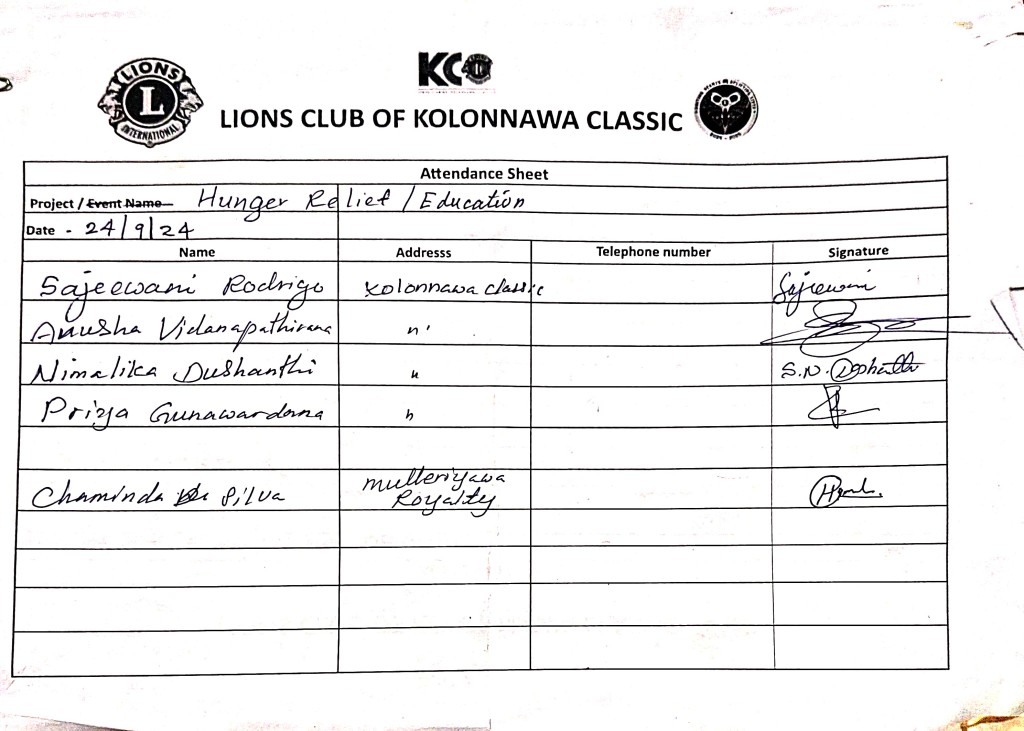 LIONS
L
INTERNATIONAL
KC
LIONS CLUB OF KOLONNAWA CLASSIC
Attendance Sheet
Project / Event Name Hunger Relief / Education
Date - 24/9/24
Name Addresss Telephone number Signature
Sajeewani Rodrigo Kolonnawa classic Sajeewani
Anusha Vidanapathirana "
Nimalika Dushanthi " S.N.
Priya Gunawardana "
Chaminda De Silva Mulleriyawa Royalty